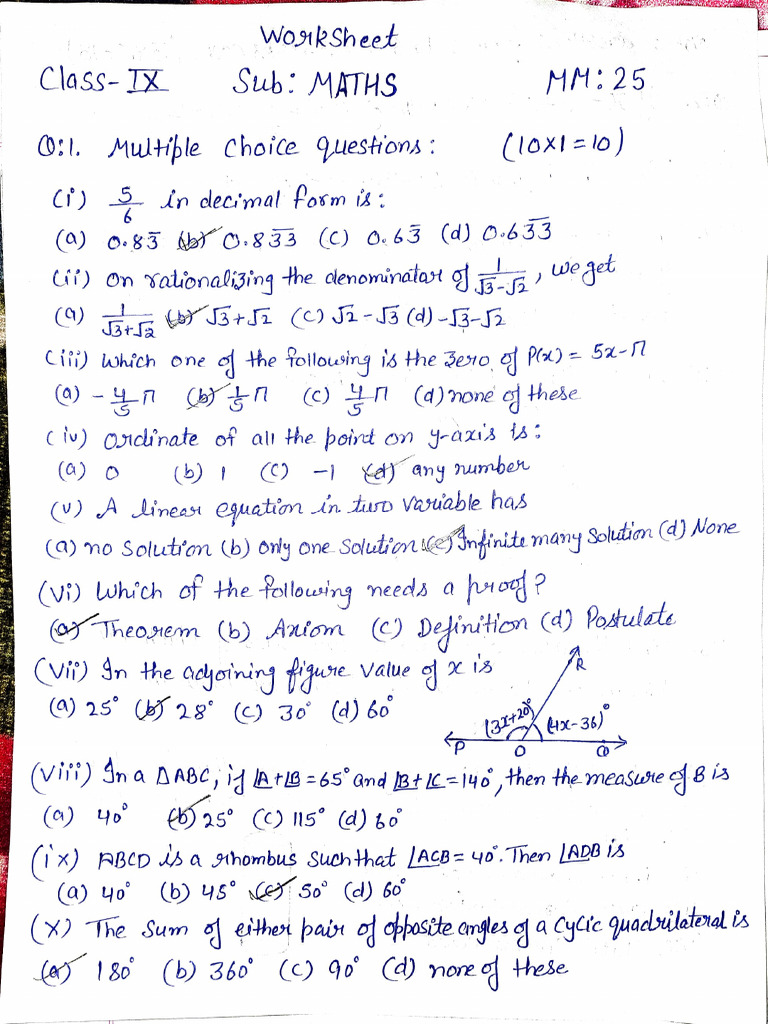 Worksheet
Class-IX Sub: MATHS MM: 25
Q:1. Multiple choice questions: (10x1=10)
(i) 5/6 in decimal form is:
(a) 0.83̅ (b) 0.83̅3̅ (c) 0.63̅ (d) 0.63̅3̅
(ii) On rationalizing the denominator of 1/(√3-√2), we get
(a) 1/(√3+√2) (b) √3+√2 (c) √2-√3 (d) -√3-√2
(iii) Which one of the following is the zero of P(x) = 5x-π
(a) -4/5 π (b) 1/5 π (c) 4/5 π (d) none of these
(iv) Ordinate of all the point on y-axis is:
(a) 0 (b) 1 (c) -1 (d) any number
(v) A linear equation in two variable has
(a) no solution (b) only one solution (c) Infinite many solution (d) None
(vi) Which of the following needs a proof?
(a) Theorem (b) Axiom (c) Definition (d) Postulate
(vii) In the adjoining figure value of x is
(a) 25° (b) 28° (c) 30° (d) 60°
R
(3x+20)° (4x-36)°
P O Q
(viii) In a ΔABC, if ∠A+∠B=65° and ∠B+∠C=140°, then the measure of B is
(a) 40° (b) 25° (c) 115° (d) 60°
(ix) ABCD is a rhombus such that ∠ACB= 40°. Then ∠ADB is
(a) 40° (b) 45° (c) 50° (d) 60°
(x) The sum of either pair of opposite angles of a cyclic quadrilateral is
(a) 180° (b) 360° (c) 90° (d) none of these